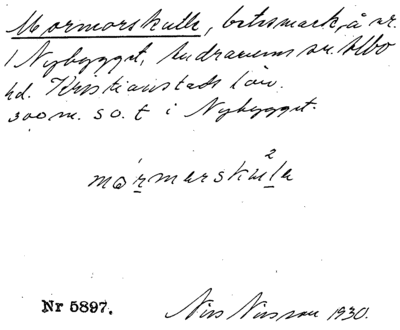 Mormorskulle, betesmark, å nr.
1 Nybygget, Andrarums sn. Albo
hd. Kristianstads län.
300 m. so. t i Nybygget.
mormarskula
2
Nr 5897.
Nils Nilsson 1930.